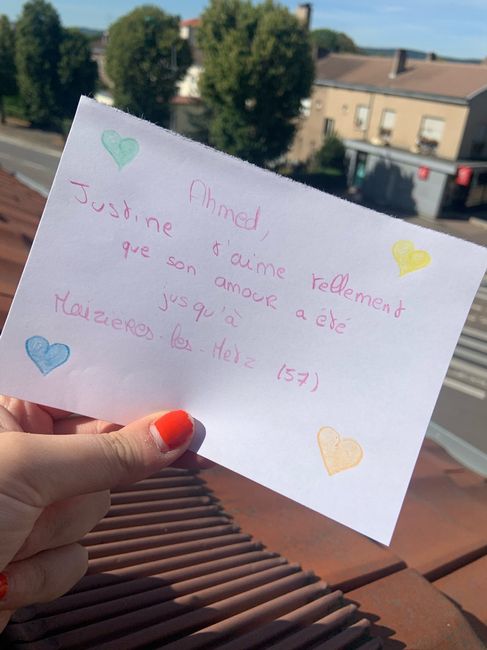 Ahmed,
Justine t'aime tellement
que son amour a été
jusqu'à
Maizieres-les-Metz (57)